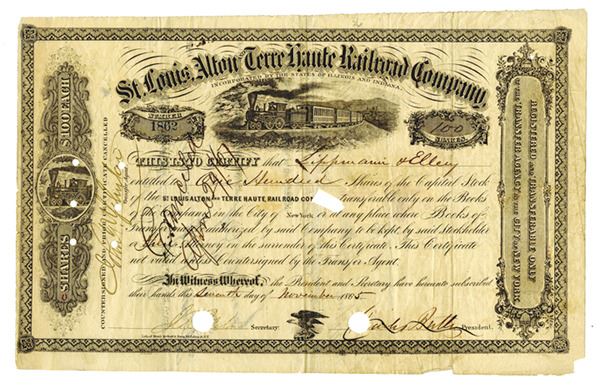 St Louis, Alton and Terre Haute Railroad Company,
INCORPORATED BY THE STATES OF ILLINOIS AND INDIANA.
NUMBER
1802
100
SHARES
THIS IS TO CERTIFY that Lippmann & Elley
entitled to One Hundred Shares of the Capital Stock
of the ST LOUIS ALTON AND TERRE HAUTE RAILROAD COM transferable only on the Books
Company, in the City of New York or at any place where Books of
Transfer authorized by said Company to be kept, by said Stockholder
Attorney on the surrender of this Certificate. This Certificate
not valid unless countersigned by the Transfer Agent.
In Witness Whereof, the President and Secretary have hereunto subscribed
their hands this Seventh day of November 1865
Secretary.
President.
SHARES
$100 EACH
COUNTERSIGNED AND PRIOR CERTIFICATE CANCELLED
REGISTERED AND TRANSFERABLE ONLY
AT THE TRANSFER AGENCY IN THE CITY OF NEW YORK.